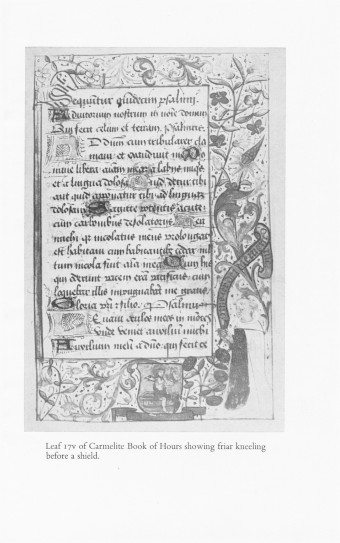 Sequntur quidecim psalmi.
Adiutorium nostrum in noie domini
Qui fecit celum et terram. psalmus.
Ad dnm cum tribularer cla
maui et exaudiuit me Do
mine libera aiam meam a labiis
et a lingua dolosa Quid detur tibi
aut quid apponatur tibi ad
Sagitte potentis acute
cum carbonibus desolatoriis Heu
michi incolatus meus
est habitaui cum cedar mul
tum incola fuit aia mea Cum
qui oderunt pacem eram pacificus cum
loquebar illis me gratis
Gloria filio psalmus
Leuaui oculos meos in
unde veniet auxilium michi
Auxilium a dno qui fecit ce
Leaf 17v of Carmelite Book of Hours showing friar kneeling
before a shield.